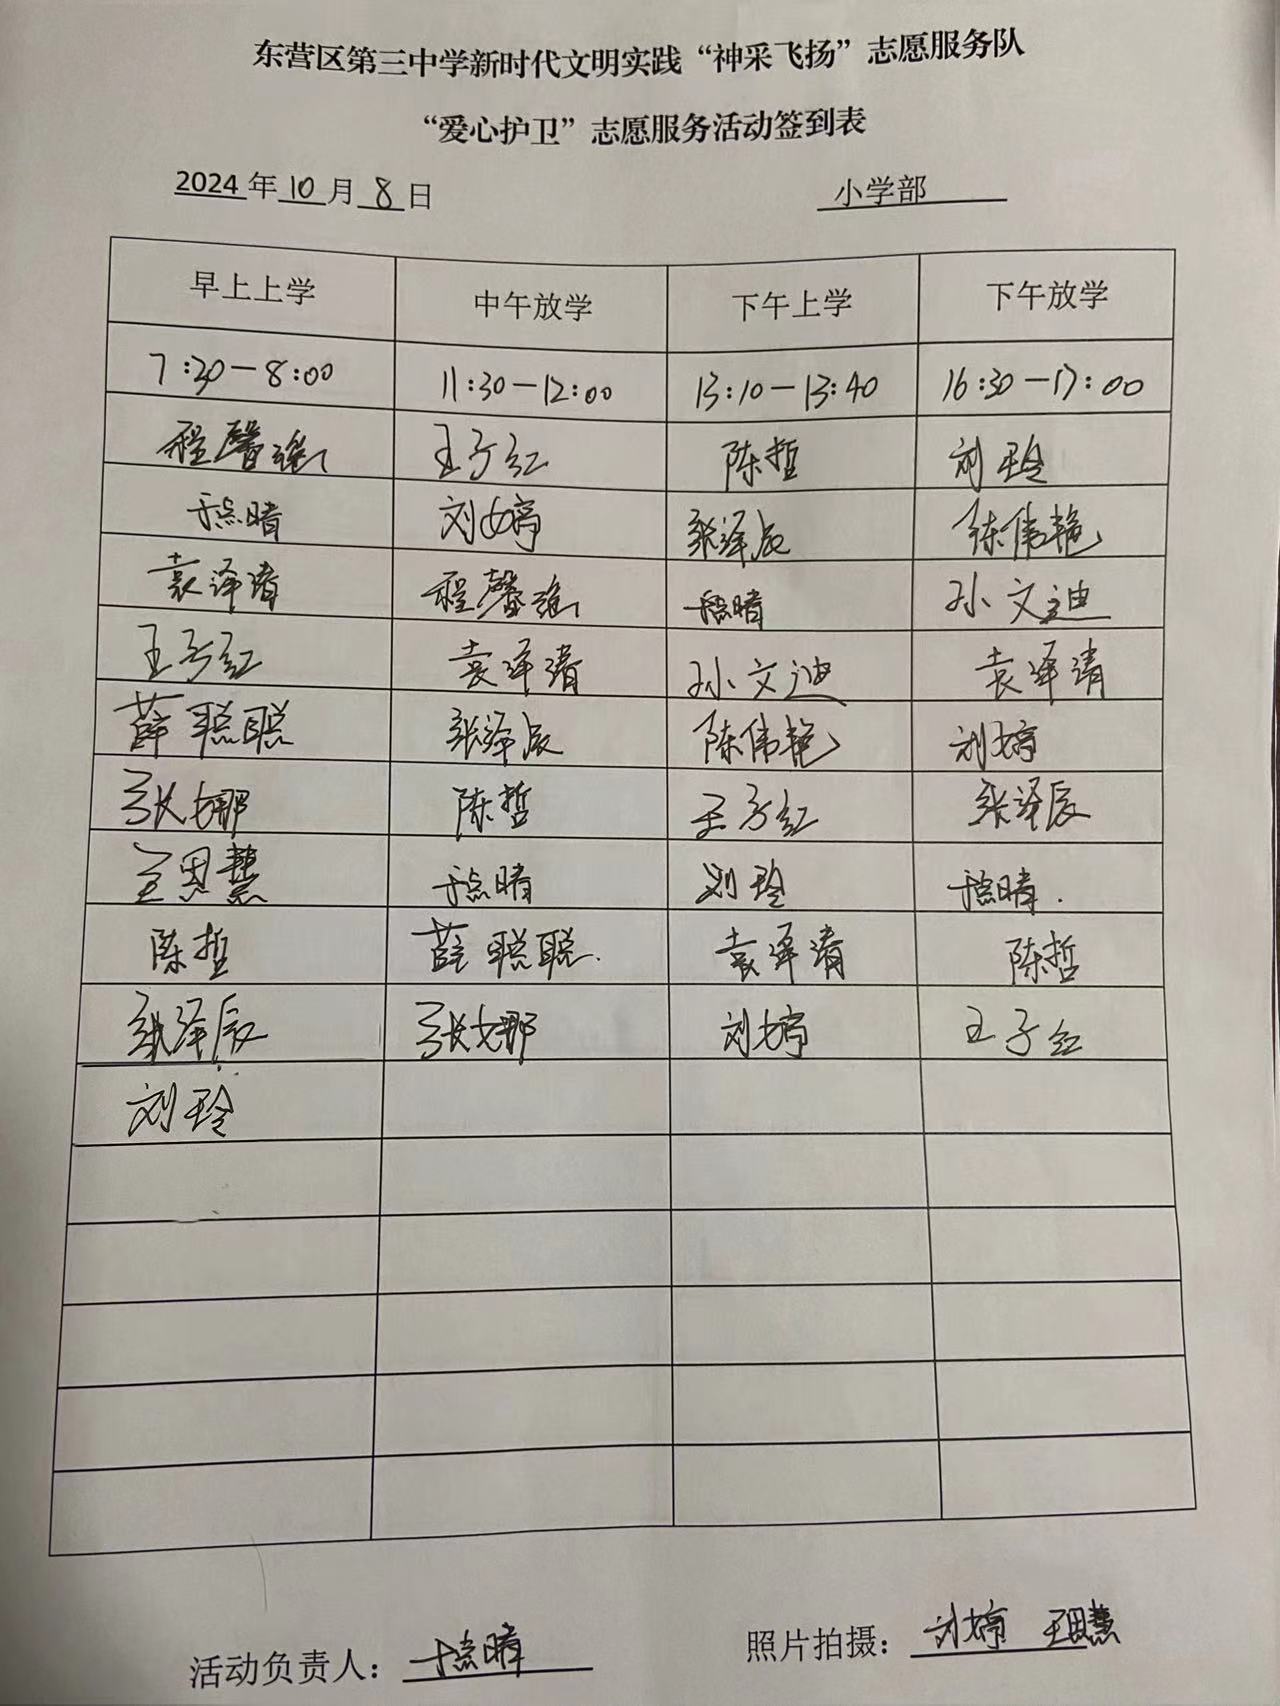 东营区第三中学新时代文明实践“神采飞扬”志愿服务队
“爱心护卫”志愿服务活动签到表
2024年10月8日 小学部
早上上学 中午放学 下午上学 下午放学
7:30-8:00 11:30-12:00 13:10-13:40 16:30-17:00
程馨瑶 王子红 陈哲 刘玲
于点晴 刘婷 张泽辰 陈伟艳
袁泽清 程馨瑶 于点晴 孙文迪
王子红 袁泽清 孙文迪 袁泽清
薛聪聪 张泽辰 陈伟艳 刘婷
张娜 陈哲 王子红 张泽辰
王思慧 于点晴 刘玲 于点晴.
陈哲 薛聪聪. 袁泽清 陈哲
张泽辰 张娜 刘婷 王子红
刘玲
活动负责人：于点晴 照片拍摄：刘婷 王思慧